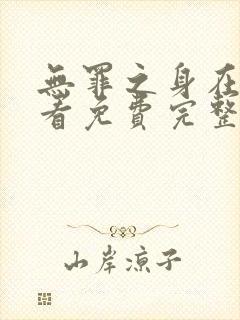 無罪之身在
看免費完整
山岸凉子